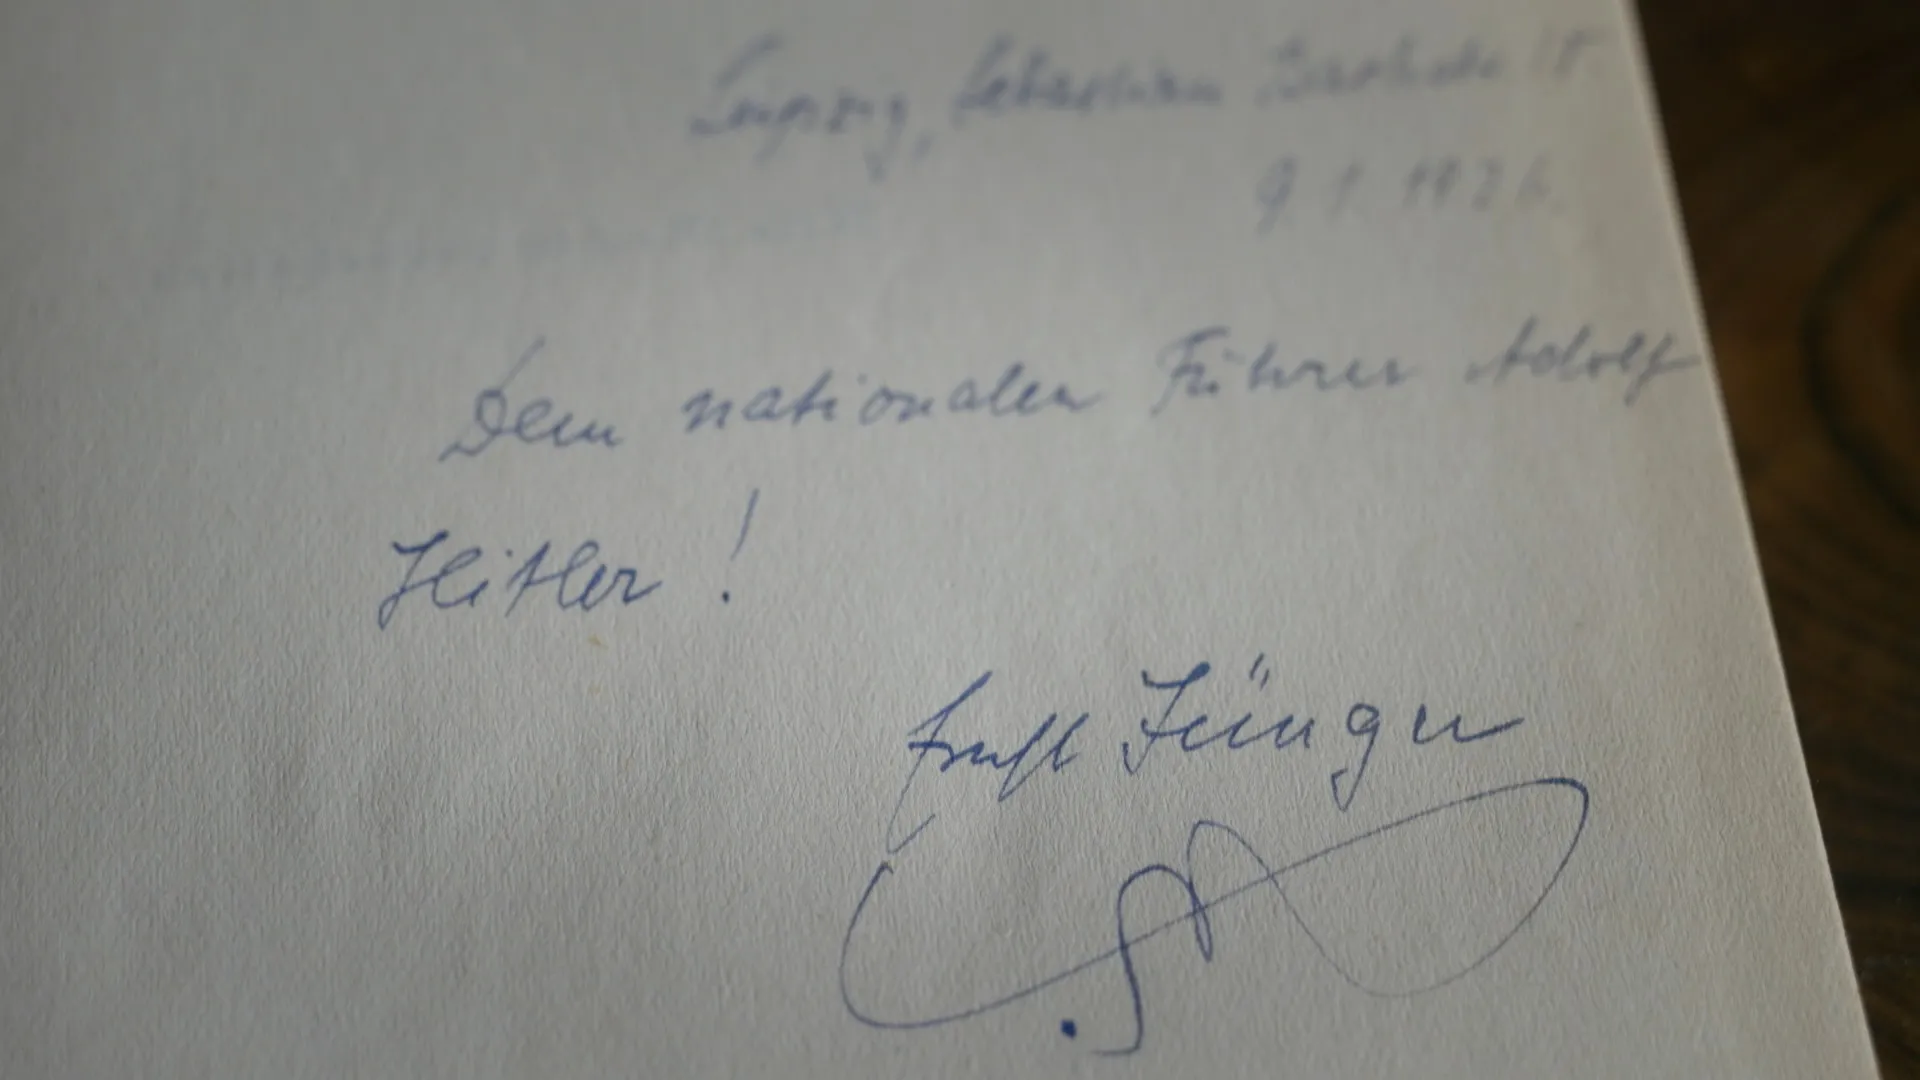 Leipzig, Sebastian Bachstr 15
9. 1. 1926.
Dem nationalen Führer Adolf
Hitler !
Ernst Jünger